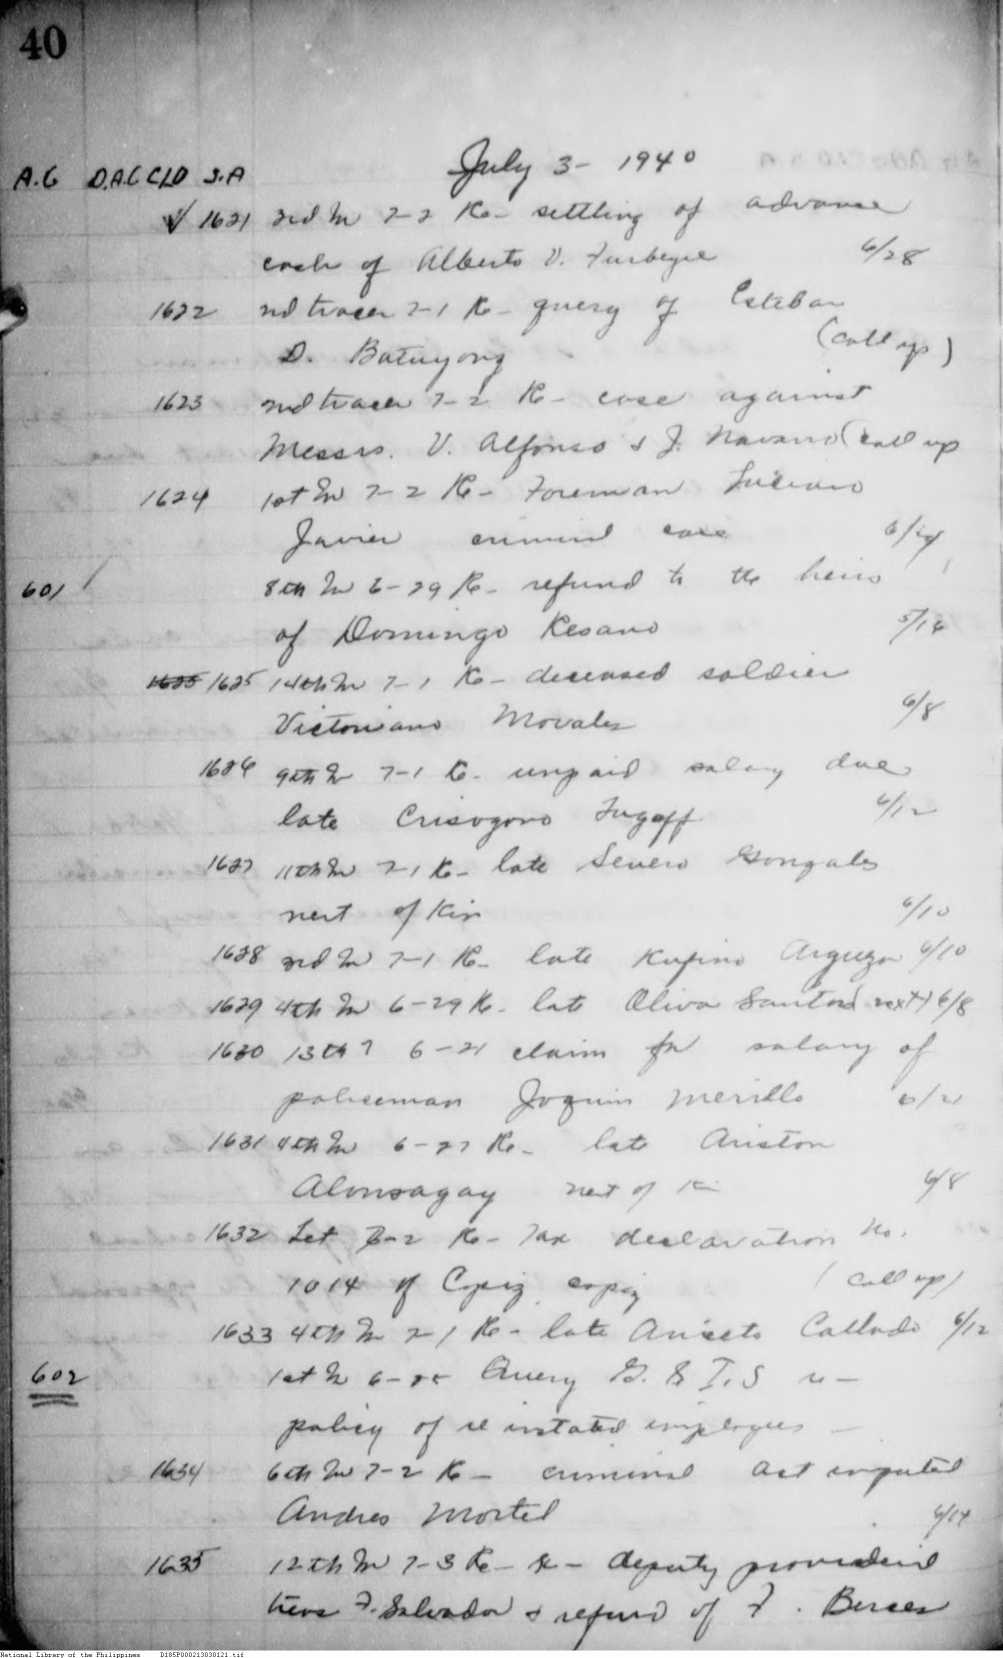 40
July 3 - 1940
A.G D.A.G CLD S.A
1621 2nd In 7-2 Re- settling of advance
cash of Alberto V. 6/28
1622 2nd tracer 7-1 Re- query of Esteban
D. Batuyong (call up)
1623 2nd tracer 7-2 Re- case against
Messrs. V. Alfonso & J. Navarro (call up
1624 1st In 7-2 Re- Foreman Luciano
Javier criminal case
601 8th In 6-29 Re- refund to the heirs
of Domingo Resano 5/16
1625 1625 14th In 7-1 Re- deceased soldier
Victoriano Morales 6/8
1626 9th In 7-1 Re- unpaid salary due
late Crisogono 6/12
1627 11th In 7-1 Re- late Severo Gonzales
next of Kin 6/10
1628 2nd In 7-1 Re- late Rufino 6/10
1629 4th In 6-29 Re- late Oliva Santos 6/8
1630 13th 6-21 claim for salary of
policeman Joquin Merillo
1631 4th In 6-27 Re- late Ariston
Alonsagay next of Ki 6/8
1632 Let 7-2 Re- Tax declaration No.
1014 of Capiz, capiz (call up)
1633 4th In 7-1 Re- late Aniceto Collado 6/12
602 1st In 6-25 Query G. S I. S re-
policy of re instated employees -
1634 6th In 7-2 Re- criminal act imputed
Andres Mortel 6/14
1635 12th In 7-3 Re- deputy provincial
treas F. Salvador & refund of F. Berces
National Library of the Philippines D185P000213030121.tif